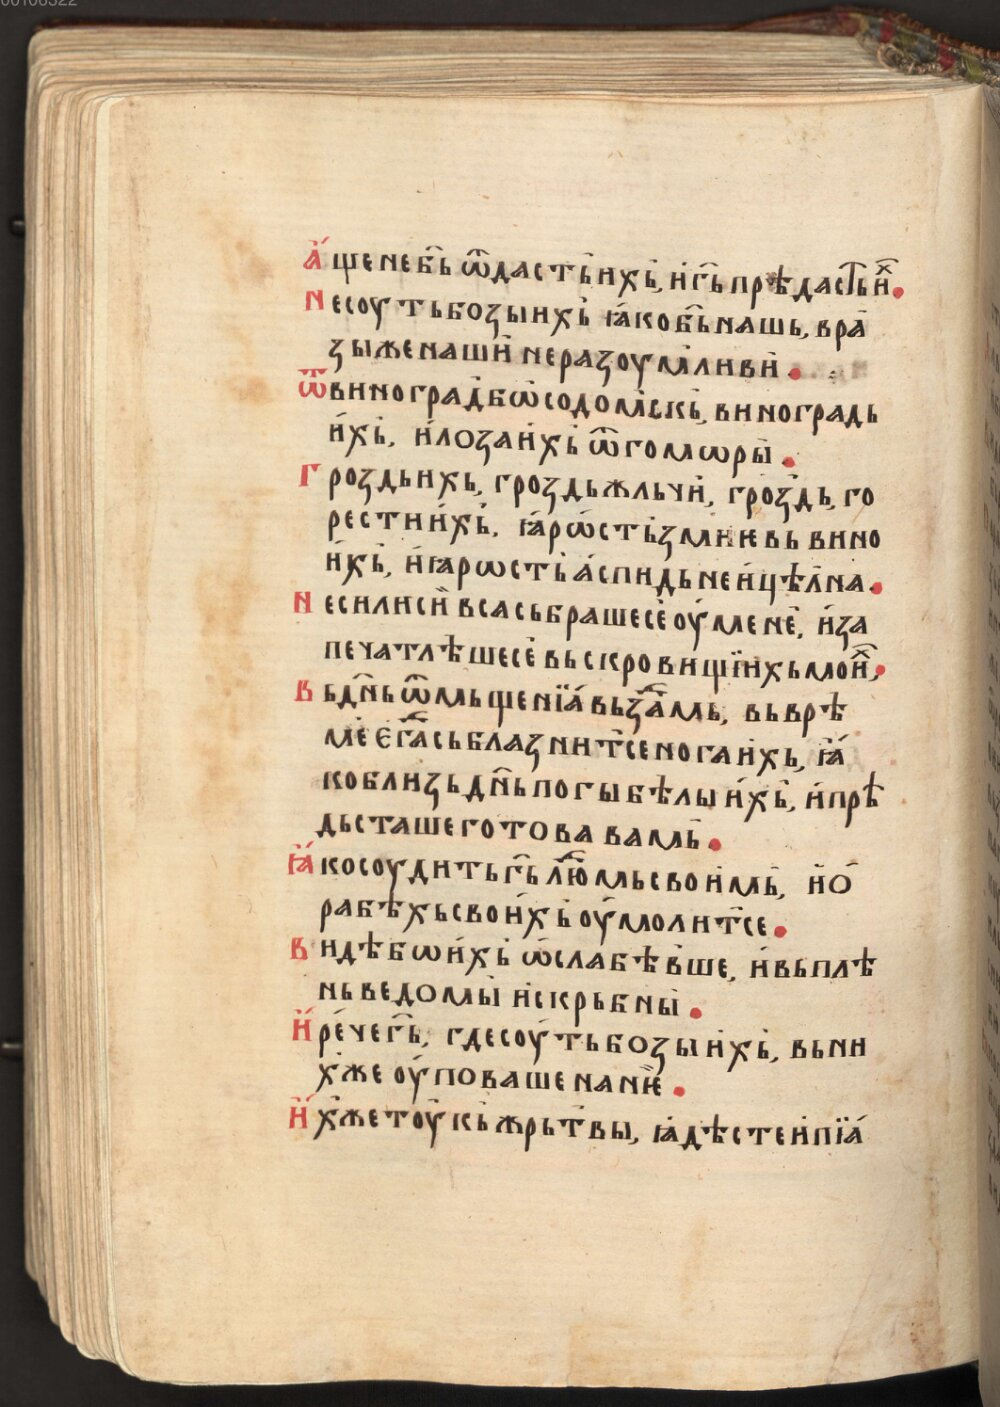 00108322
А҆́ще не бь҃ ѿдасть и҆хь, и҆ гь҃ прѣдасть и҆х.
Не соуть бозы ихь ꙗ҆ко бь҃ нашь, вра
зы же наши҆ неразоум́ливи҆.
Ѿ виноград бѡ содом́скь, виноградь
и҆́хь, и҆́ лоза и҆хь ѿ гомѡры̀.
Гроздь ихь, гроздь жльчи҆, грозд́ь, го
рести и҆́хь, ꙗ҆́рѡсть змиѥвь вино
и҆хь, и҆ ꙗрѡсть а҆́спидь неи҆цѣл́на.
Не си ли си҆ всa сьбрaше се оу҆́ мене, и҆за
печатлѣше се вь скровищїихь мои҆х,
Вь дн҃ь ѿмьщенїа҆́ вьз̾да́мь, вь врѣ
ме̑ є҆гда̀ сьблазнит̾се нога и҆хь, ꙗ҆́
ко близь дн҃ь погыбѣлы и҆́хь, и҆ прѣ
дьсташе готова вамь.
Ꙗ҆́ко соудить гь҃ лю́мь своимь, и҆ о҆
рабѣхь свои҆́хь оу҆́молит̾се.
Видѣ бѡ и҆́хь ѡ҆слабѣв̾ше, и҆ вь плѣ
нь ведомы̀ и҆скрьбны̀.
И҆́ ре́че гь҃, где соу́ть бозы и҆хь, вь ни
х̾же оу҆́поваше на нѥ.
И҆́х̾же тоу̀кь жрьт̾вы, ꙗ҆дѣсте и҆ пїа҆́